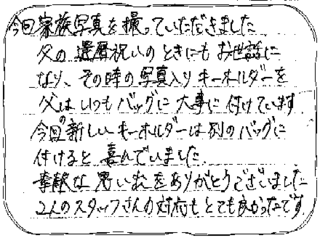 今回家族写真を撮っていただきました
父の還暦祝いのときにもお世話に
なり、その時の写真入りキーホルダーを
父はいつもバッグに大事に付けています
今回の新しいキーホルダーは別のバッグに
付けると喜んでいました
素敵な思い出をありがとうございました
2人のスタッフさんの対応もとても良かったです